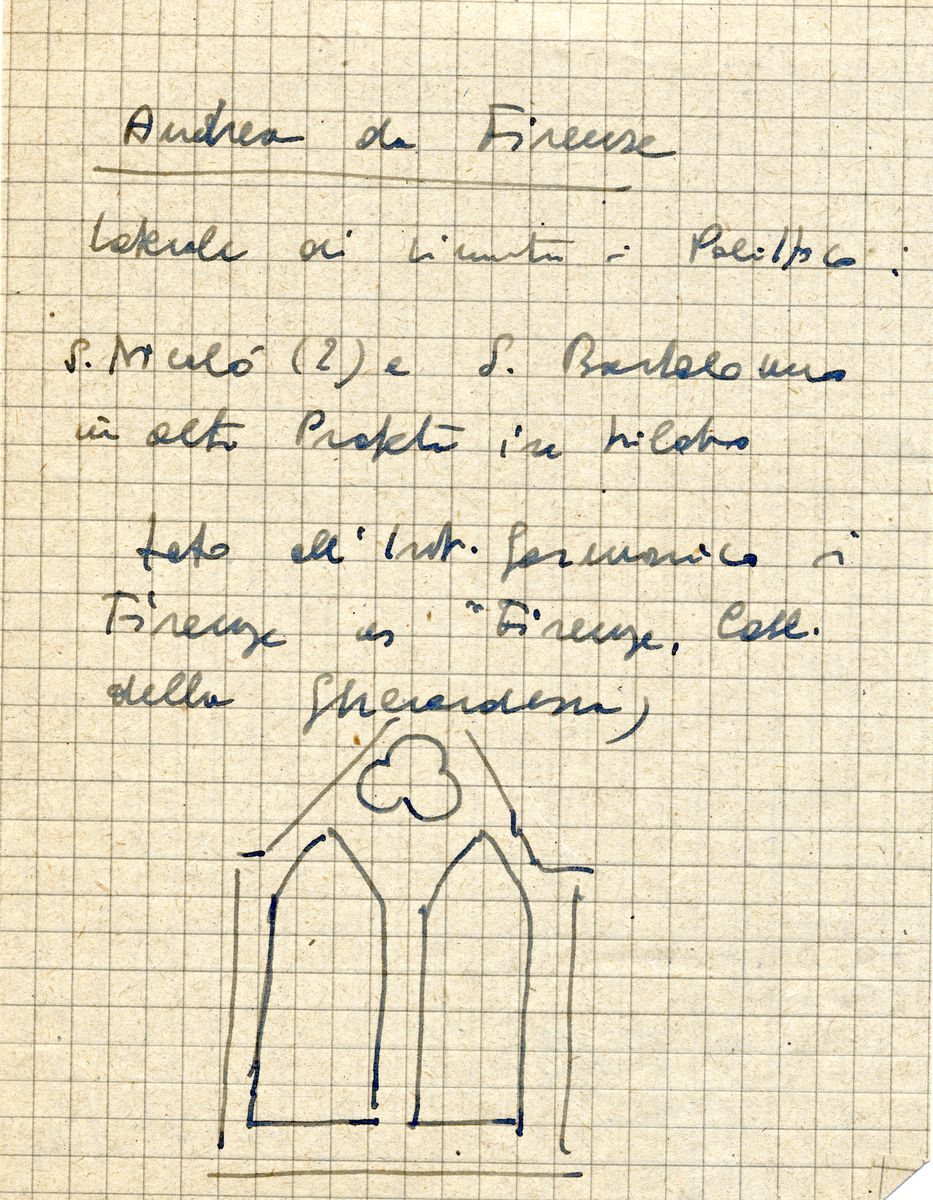 Andrea da Firenze
laterale di sinistra i Polittico :
S. Nicolò (?) e S. Bartolomeo
in alto Profeta in trilobo
foto all'Ist. Germanico i
Firenze as "Firenze, Coll.
della Gherardesca)